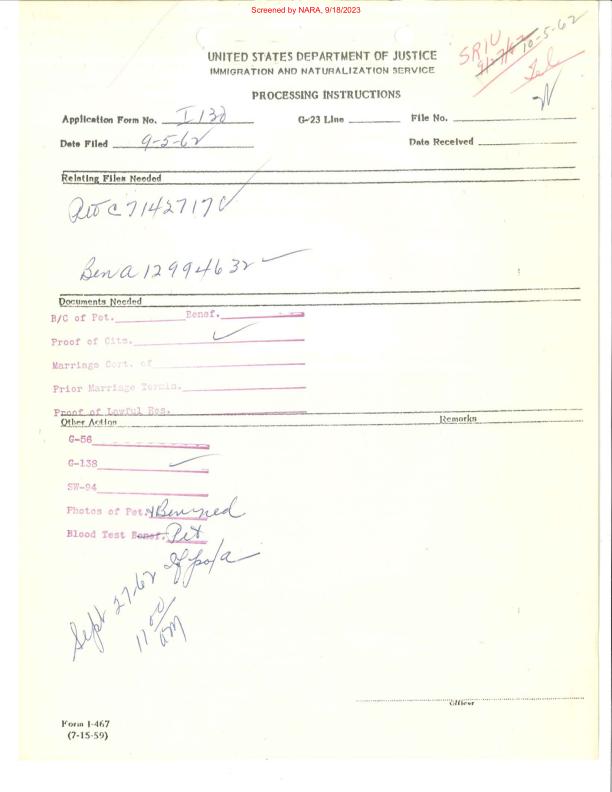 Screened by NARA, 9/18/2023
SRIU
9/27/62 10-5-62
UNITED STATES DEPARTMENT OF JUSTICE
IMMIGRATION AND NATURALIZATION SERVICE
PROCESSING INSTRUCTIONS
Application Form No. I 130 G-23 Line File No.
Date Filed 9-5-62 Date Received
Relating Files Needed
Pet C 7142717
Ben A 12994632
Documents Needed
B/C of Pet. Benef.
Proof of Citz.
Marriage Cert. of
Prior Marriage Termin.
Proof of Lawful Res.
Other Action Remarks
G-56
G-138
SW-94
Photos of Pet. & Ben
Blood Test Benef. Pet
Sept 27-62
11 00
AM
Officer
Form I-467
(7-15-59)